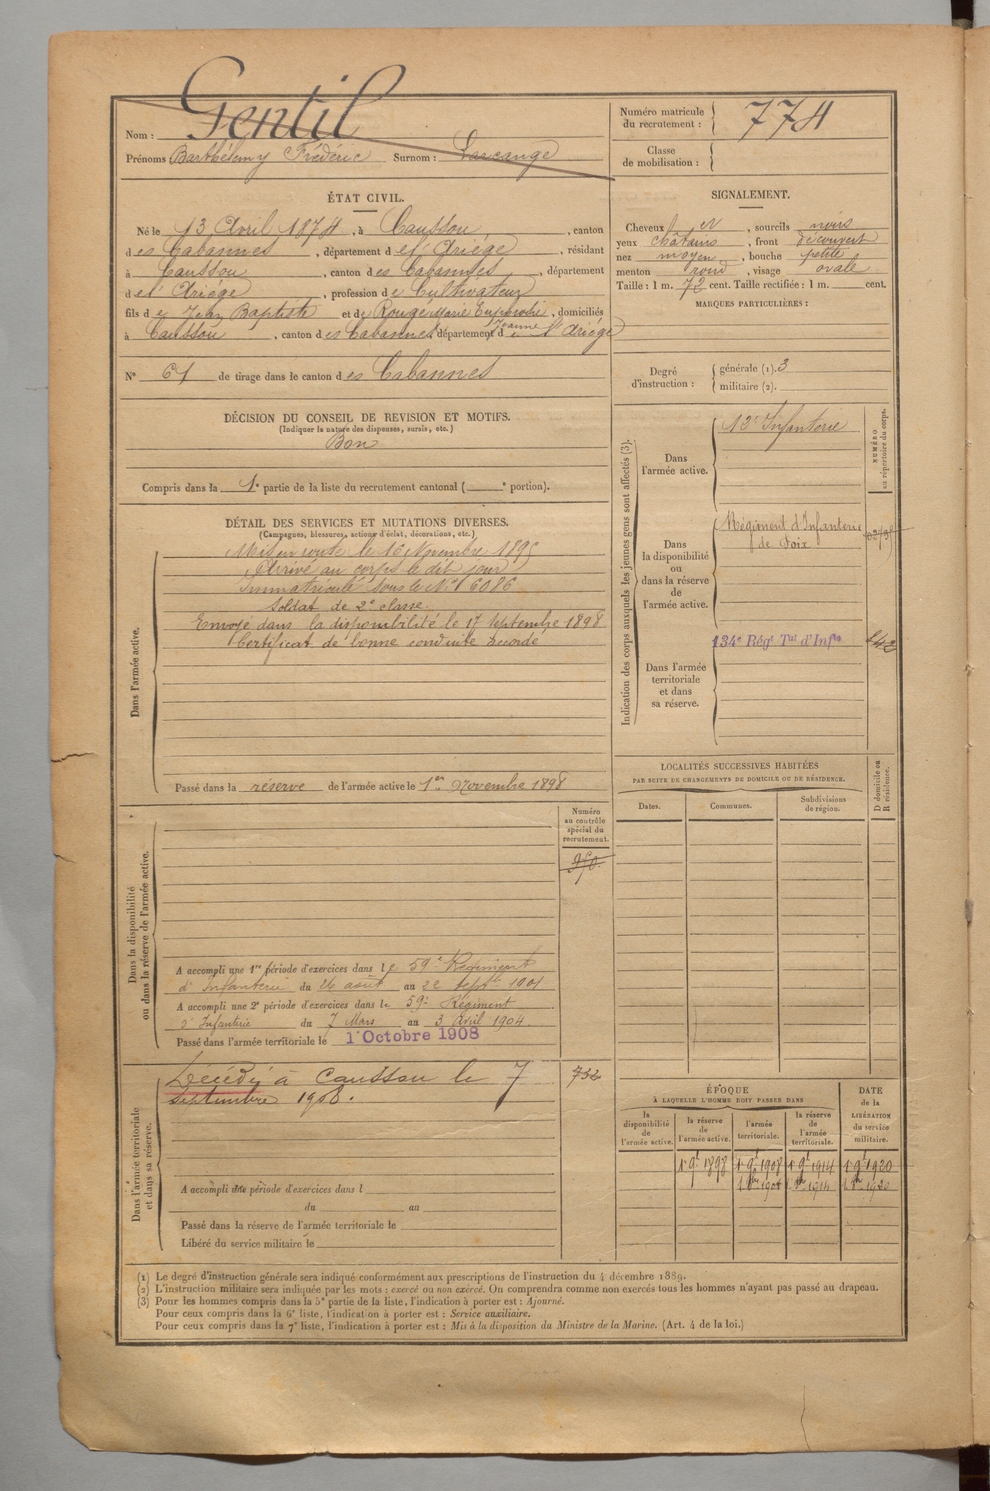 Nom : Gentil
Prénoms Barthélemy Frédéric Surnom : Lascange
Numéro matricule du recrutement : 774
Classe de mobilisation :
ÉTAT CIVIL.
Né le 13 Avril 1874, à Caussou, canton
des Cabannes, département de l'Ariège, résidant
à Caussou, canton des Cabannes, département
de l'Ariège, profession de Cultivateur
fils de Jean Baptiste et de Rouge Marie Euphrosie Jeanne, domiciliés
à Caussou, canton des Cabannes, département de l'Ariège
N° 61 de tirage dans le canton des Cabannes
SIGNALEMENT.
Cheveux et, sourcils noirs
yeux châtains, front découvert
nez moyen, bouche petite
menton rond, visage ovale
Taille : 1 m. 72 cent. Taille rectifiée : 1 m. cent.
MARQUES PARTICULIÈRES :
Degré d'instruction : générale (1). 3
militaire (2).
DÉCISION DU CONSEIL DE REVISION ET MOTIFS.
(Indiquer la nature des dispenses, sursis, etc.)
Bon
Compris dans la 1e partie de la liste du recrutement cantonal ( e portion).
DÉTAIL DES SERVICES ET MUTATIONS DIVERSES.
(Campagnes, blessures, actions d'éclat, décorations, etc.)
Dans l'armée active.
Mis en route le 16 Novembre 1895
Arrivé au corps le dit jour
Immatriculé sous le N° 6086
Soldat de 2e classe.
Envoyé dans la disponibilité le 17 Septembre 1898
Certificat de bonne conduite accordé
Passé dans la réserve de l'armée active le 1er Novembre 1898
Indication des corps auxquels les jeunes gens sont affectés (3).
NUMÉRO au répertoire du corps.
Dans l'armée active.
12e Infanterie
Dans la disponibilité ou dans la réserve de l'armée active.
Régiment d'Infanterie
de Foix
Dans l'armée territoriale et dans sa réserve.
134e Régt Tal d'Infie
LOCALITÉS SUCCESSIVES HABITÉES
PAR SUITE DE CHANGEMENTS DE DOMICILE OU DE RÉSIDENCE.
Dates.
Communes.
Subdivisions de région.
D domicile ou R résidence.
Dans la disponibilité ou dans la réserve de l'armée active.
Numéro au contrôle spécial du recrutement.
950
A accompli une 1re période d'exercices dans le 59e Régiment
d'Infanterie du 26 août au 22 Septe 1901
A accompli une 2e période d'exercices dans le 59e Régiment
d'Infanterie du 7 Mars au 3 Avril 1904
Passé dans l'armée territoriale le 1 Octobre 1908
Dans l'armée territoriale et dans sa réserve.
Décédé à Caussou le 7
septembre 1908.
732
A accompli une période d'exercices dans l
du au
Passé dans la réserve de l'armée territoriale le
Libéré du service militaire le
ÉPOQUE
À LAQUELLE L'HOMME DOIT PASSER DANS
la disponibilité de l'armée active.
la réserve de l'armée active.
l'armée territoriale.
la réserve de l'armée territoriale.
DATE de la LIBÉRATION du service militaire.
1er 9e 1898 1er 9e 1908 1er 9e 1914 1er 9e 1920
1. 8bre 1908 1. 8bre 1914 1. 8bre 1920
(1) Le degré d'instruction générale sera indiqué conformément aux prescriptions de l'instruction du 4 décembre 1889.
(2) L'instruction militaire sera indiquée par les mots : exercé ou non exercé. On comprendra comme non exercés tous les hommes n'ayant pas passé au drapeau.
(3) Pour les hommes compris dans la 5e partie de la liste, l'indication à porter est : Ajourné.
Pour ceux compris dans la 6e liste, l'indication à porter est : Service auxiliaire.
Pour ceux compris dans la 7e liste, l'indication à porter est : Mis à la disposition du Ministre de la Marine. (Art. 4 de la loi.)